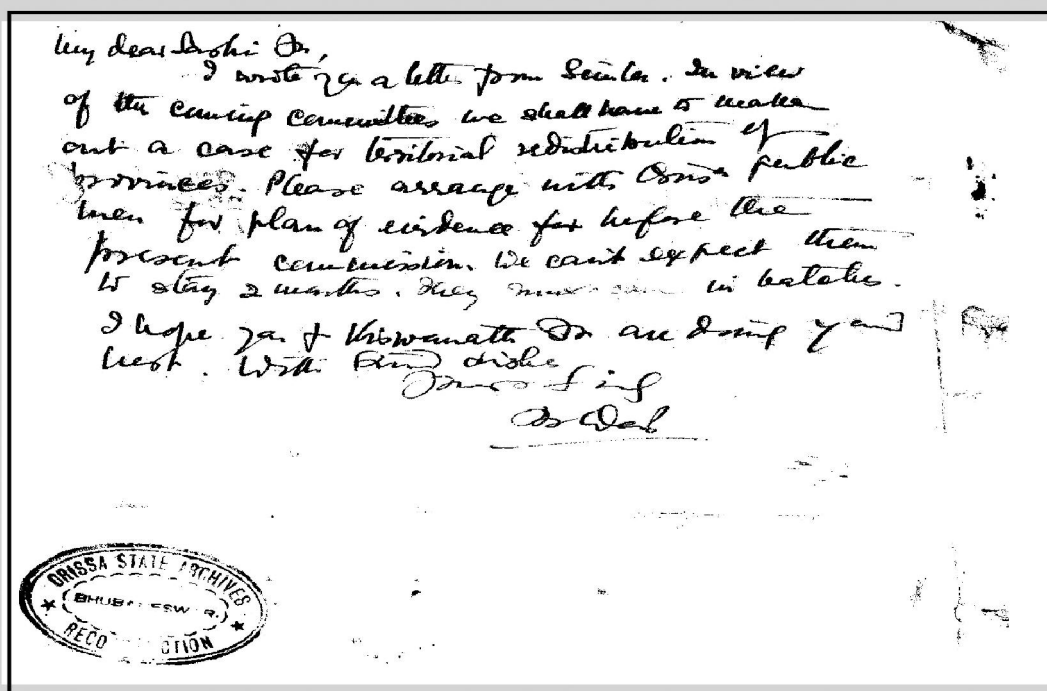 My dear Sashi Br,
I wrote you a letter from Simla. In view
of the coming committees we shall have to make
out a case for territorial redistribution of
provinces. Please arrange with Oriya public
men for plan of evidence for before the
present commission. We can't expect them
to stay 2 months. They in batches.
I hope you & Viswanath Br are doing your
best. With kind
Yours
ORISSA STATE ARCHIVES
BHUB ESW R.
RECO CTION